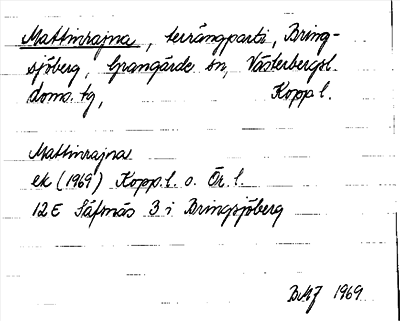 Mattinrajna, terrängparti, Bring-
sjöberg, Grangärde sn, Västerbergsl.
doms. tg, Kopp l.
Mattinrajna
ek (1969) Kopp. l. o. Ör. l.
12E Säfsnäs 3 i Bringsjöberg
1969